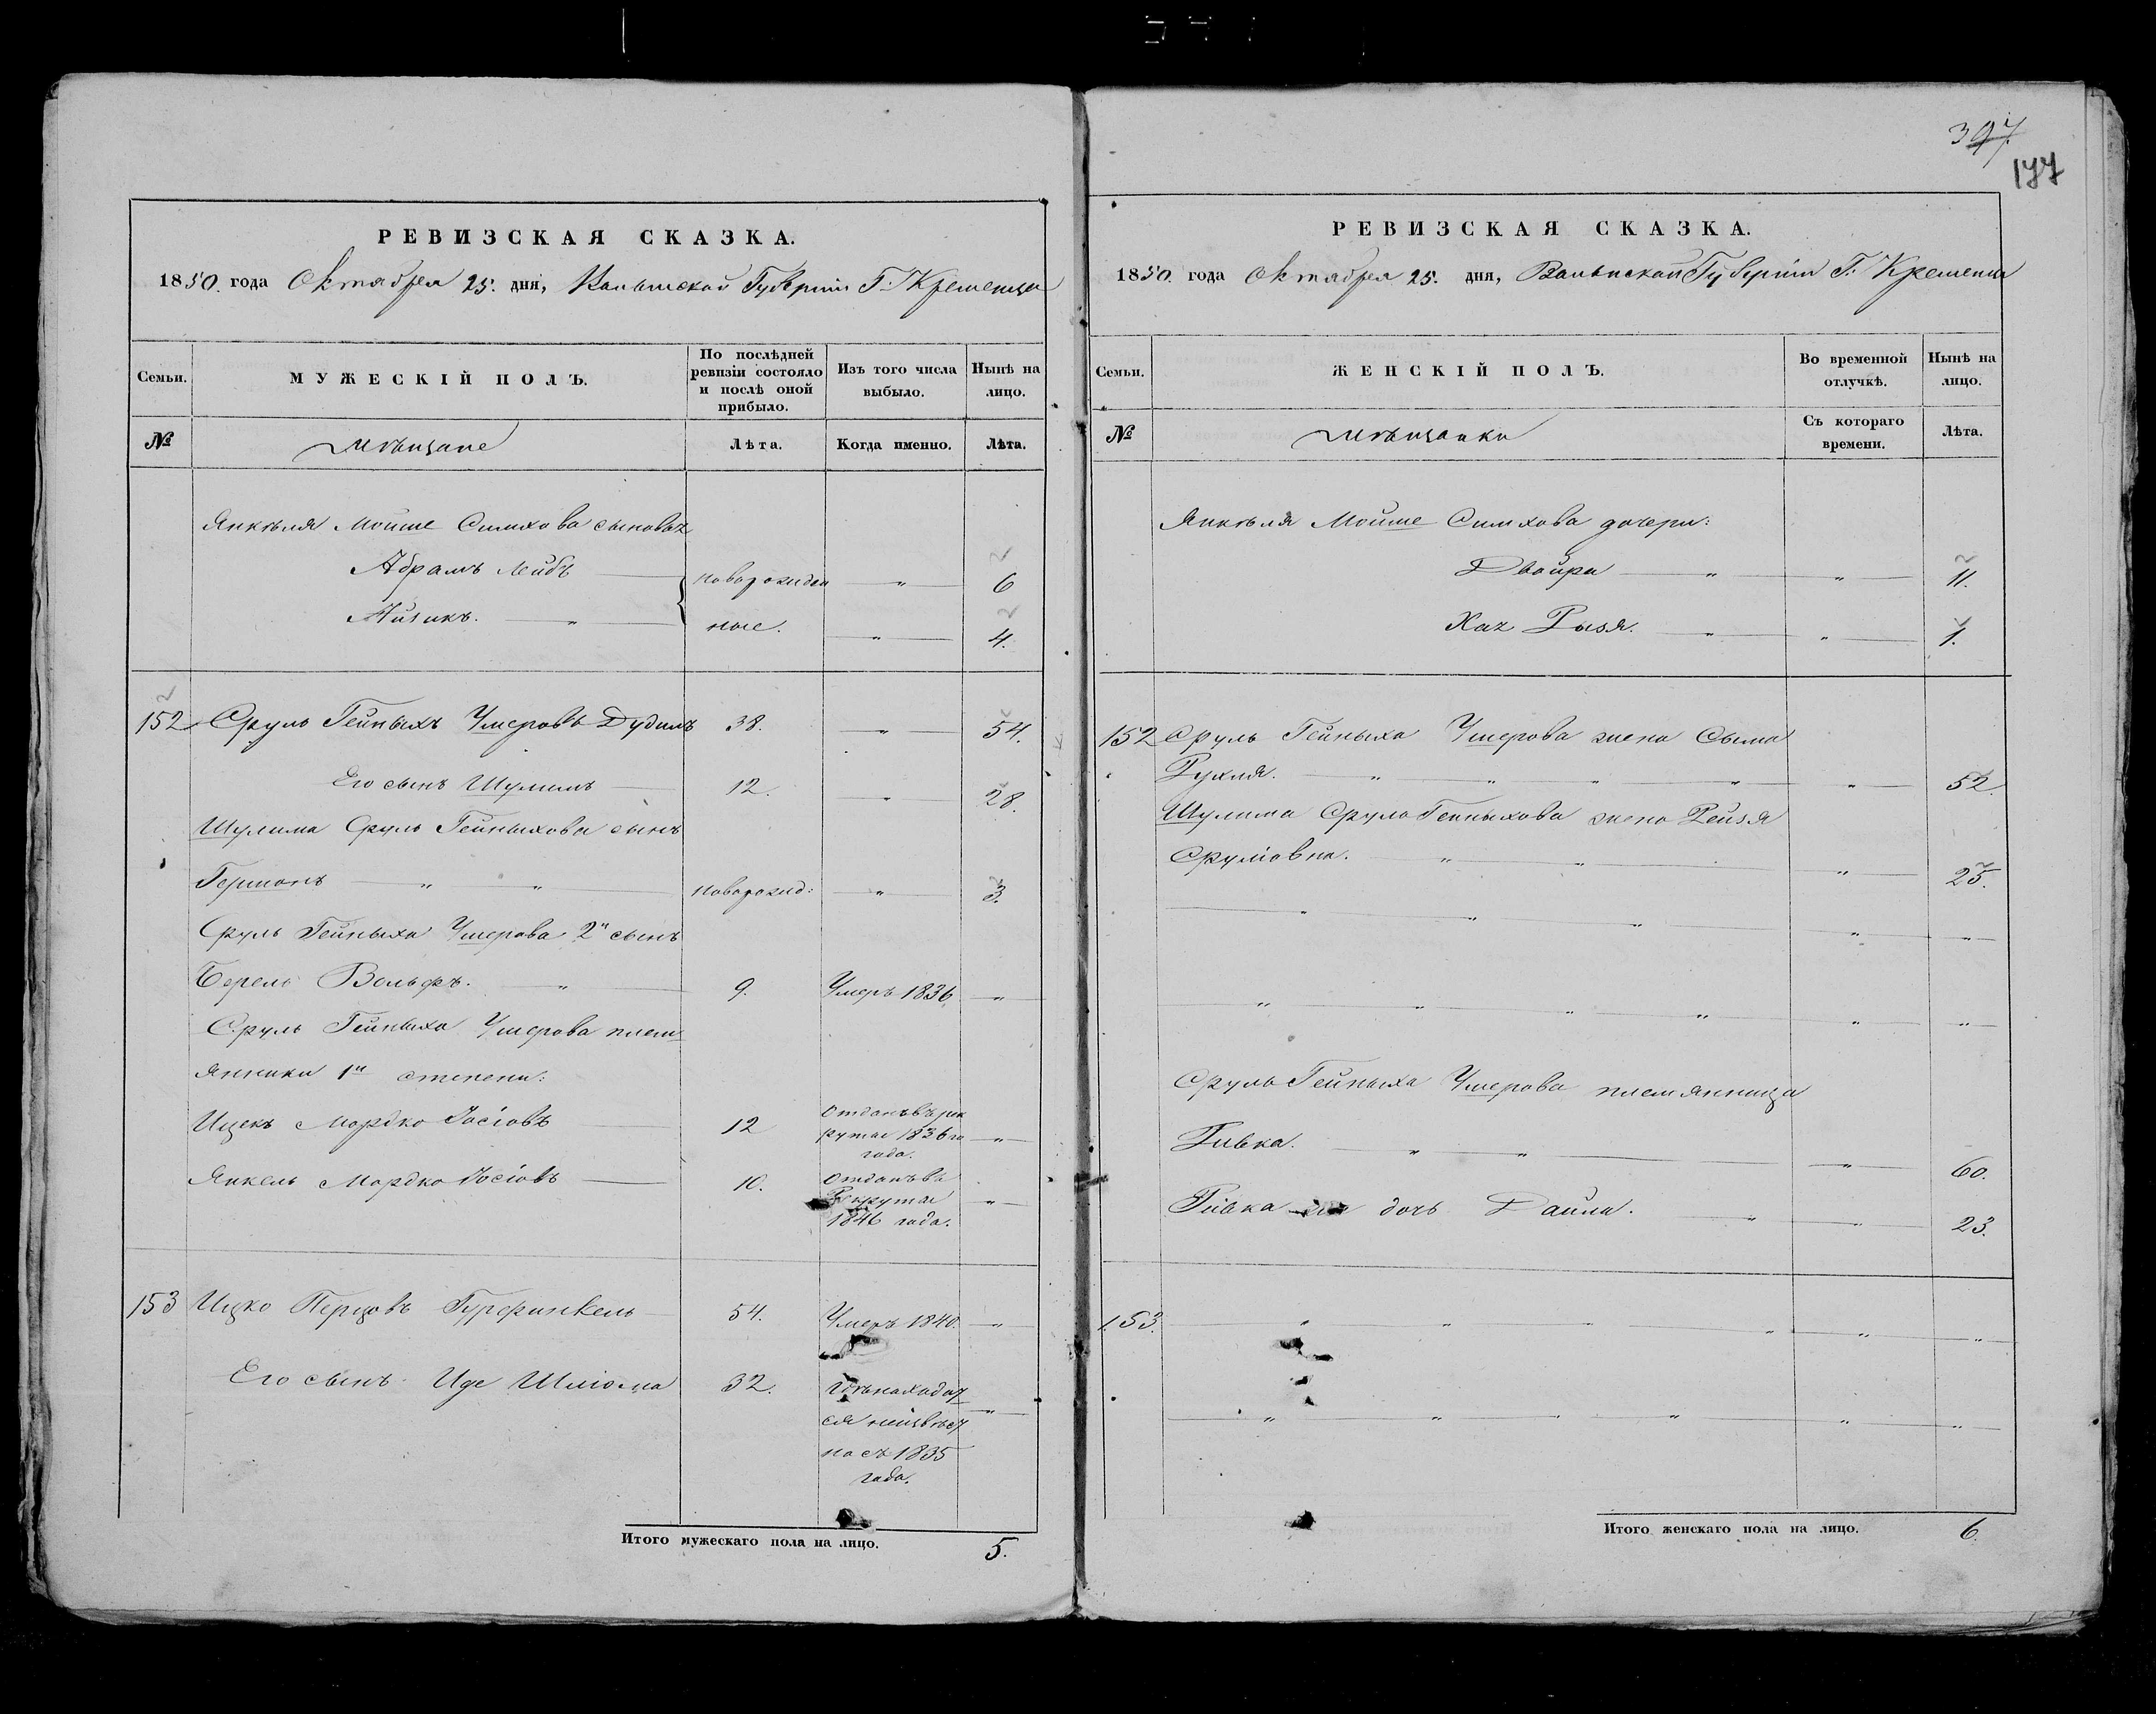 397.
177
РЕВИЗСКАЯ СКАЗКА.
1850. года Октября 25. дня, Волынской Губерніи Г. Кременца
Семьи.
МУЖЕСКІЙ ПОЛЪ.
По послѣдней ревизіи состояло и послѣ оной прибыло.
Изъ того числа выбыло.
Нынѣ на лицо.
№
Мѣщане
Лѣта.
Когда именно.
Лѣта.
Янкеля Мойше Симхова сыновья
Абрамъ Лейбъ — новорожден — " — 6
Айзикъ. — " — ные. — " — 4.
152 Сруль Гейныхъ Умеровъ Дудикъ 38. — " — 54.
Его сынъ Шулимъ — 12. — " — 28.
Шулима Сруль Гейныхова сынъ
Гершонъ — " — " — новорожд: — " — 3.
Сруль Гейныха Умерова 2й сынъ
Берель Вольфъ. — " — 9. Умеръ 1836 — " —
Сруль Гейныха Умерова плем
янники 1й степени:
Ицекъ Мордко Іосіовъ — 12 Отданъ въ рек
руты 1836го — " —
года.
Янкель Мордко Іосіовъ — 10. Отданъ въ
Рекруты — " —
1846 года.
153 Ицко Перцовъ Гурфинкель — 54. Умеръ 1840. — " —
Его сынъ Иде Шліома 32. Гдѣ находит
ся неизвѣст — " —
но съ 1835
года.
Итого мужескаго пола на лицо. 5.
РЕВИЗСКАЯ СКАЗКА.
1850. года Октября 25. дня, Волынской Губерніи Г. Кременца
Семьи.
ЖЕНСКІЙ ПОЛЪ.
Во временной отлучкѣ.
Нынѣ на лицо.
№
Мѣщанки
Съ котораго времени.
Лѣта.
Янкеля Мойше Симхова дочери:
Двойра — " — " — 11.
Хая Рызя. — " — " — 1.
152 Сруль Гейныха Умерова жена Сыма
Рухля. — " — " — " — " — " — 52.
Шулима Сруль Гейныхова жена Рейзя
Сруліовна. — " — " — " — 25.
— " — " — " — " — " —
— " — " — " — " — " — " —
Сруль Гейныха Умерова племянница
Ривка. — " — " — " — 60.
Ривка дочь — " — " — 23.
153. — " — " — " — " — " — "
— " — " — " — " — " — " —
Итого женскаго пола на лицо. 6.